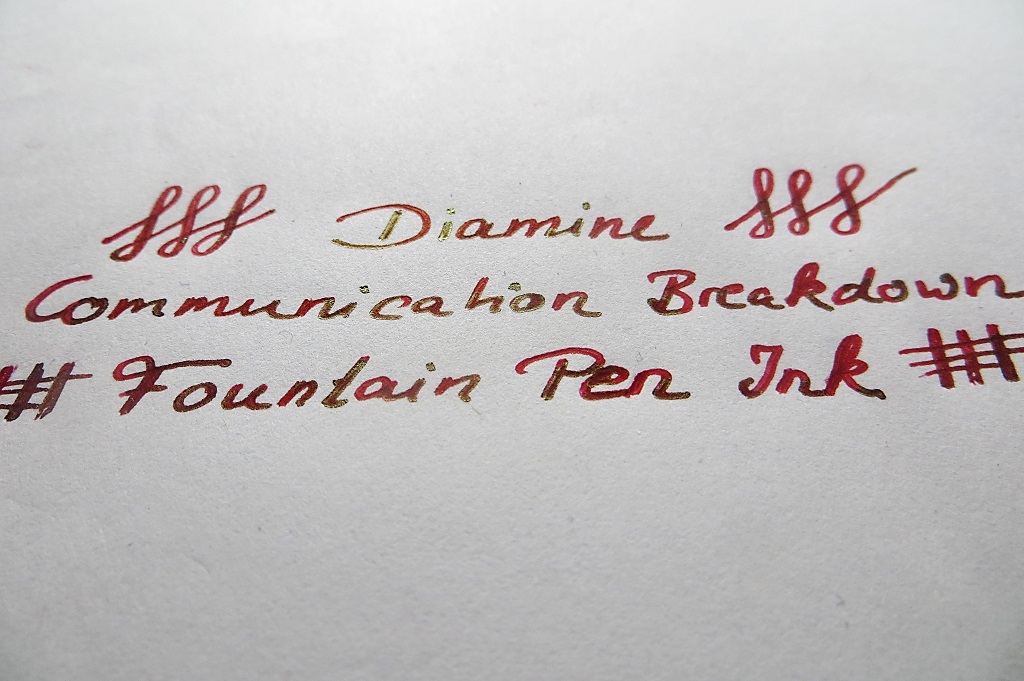 Diamine
Communication Breakdown
# Fountain Pen Ink #